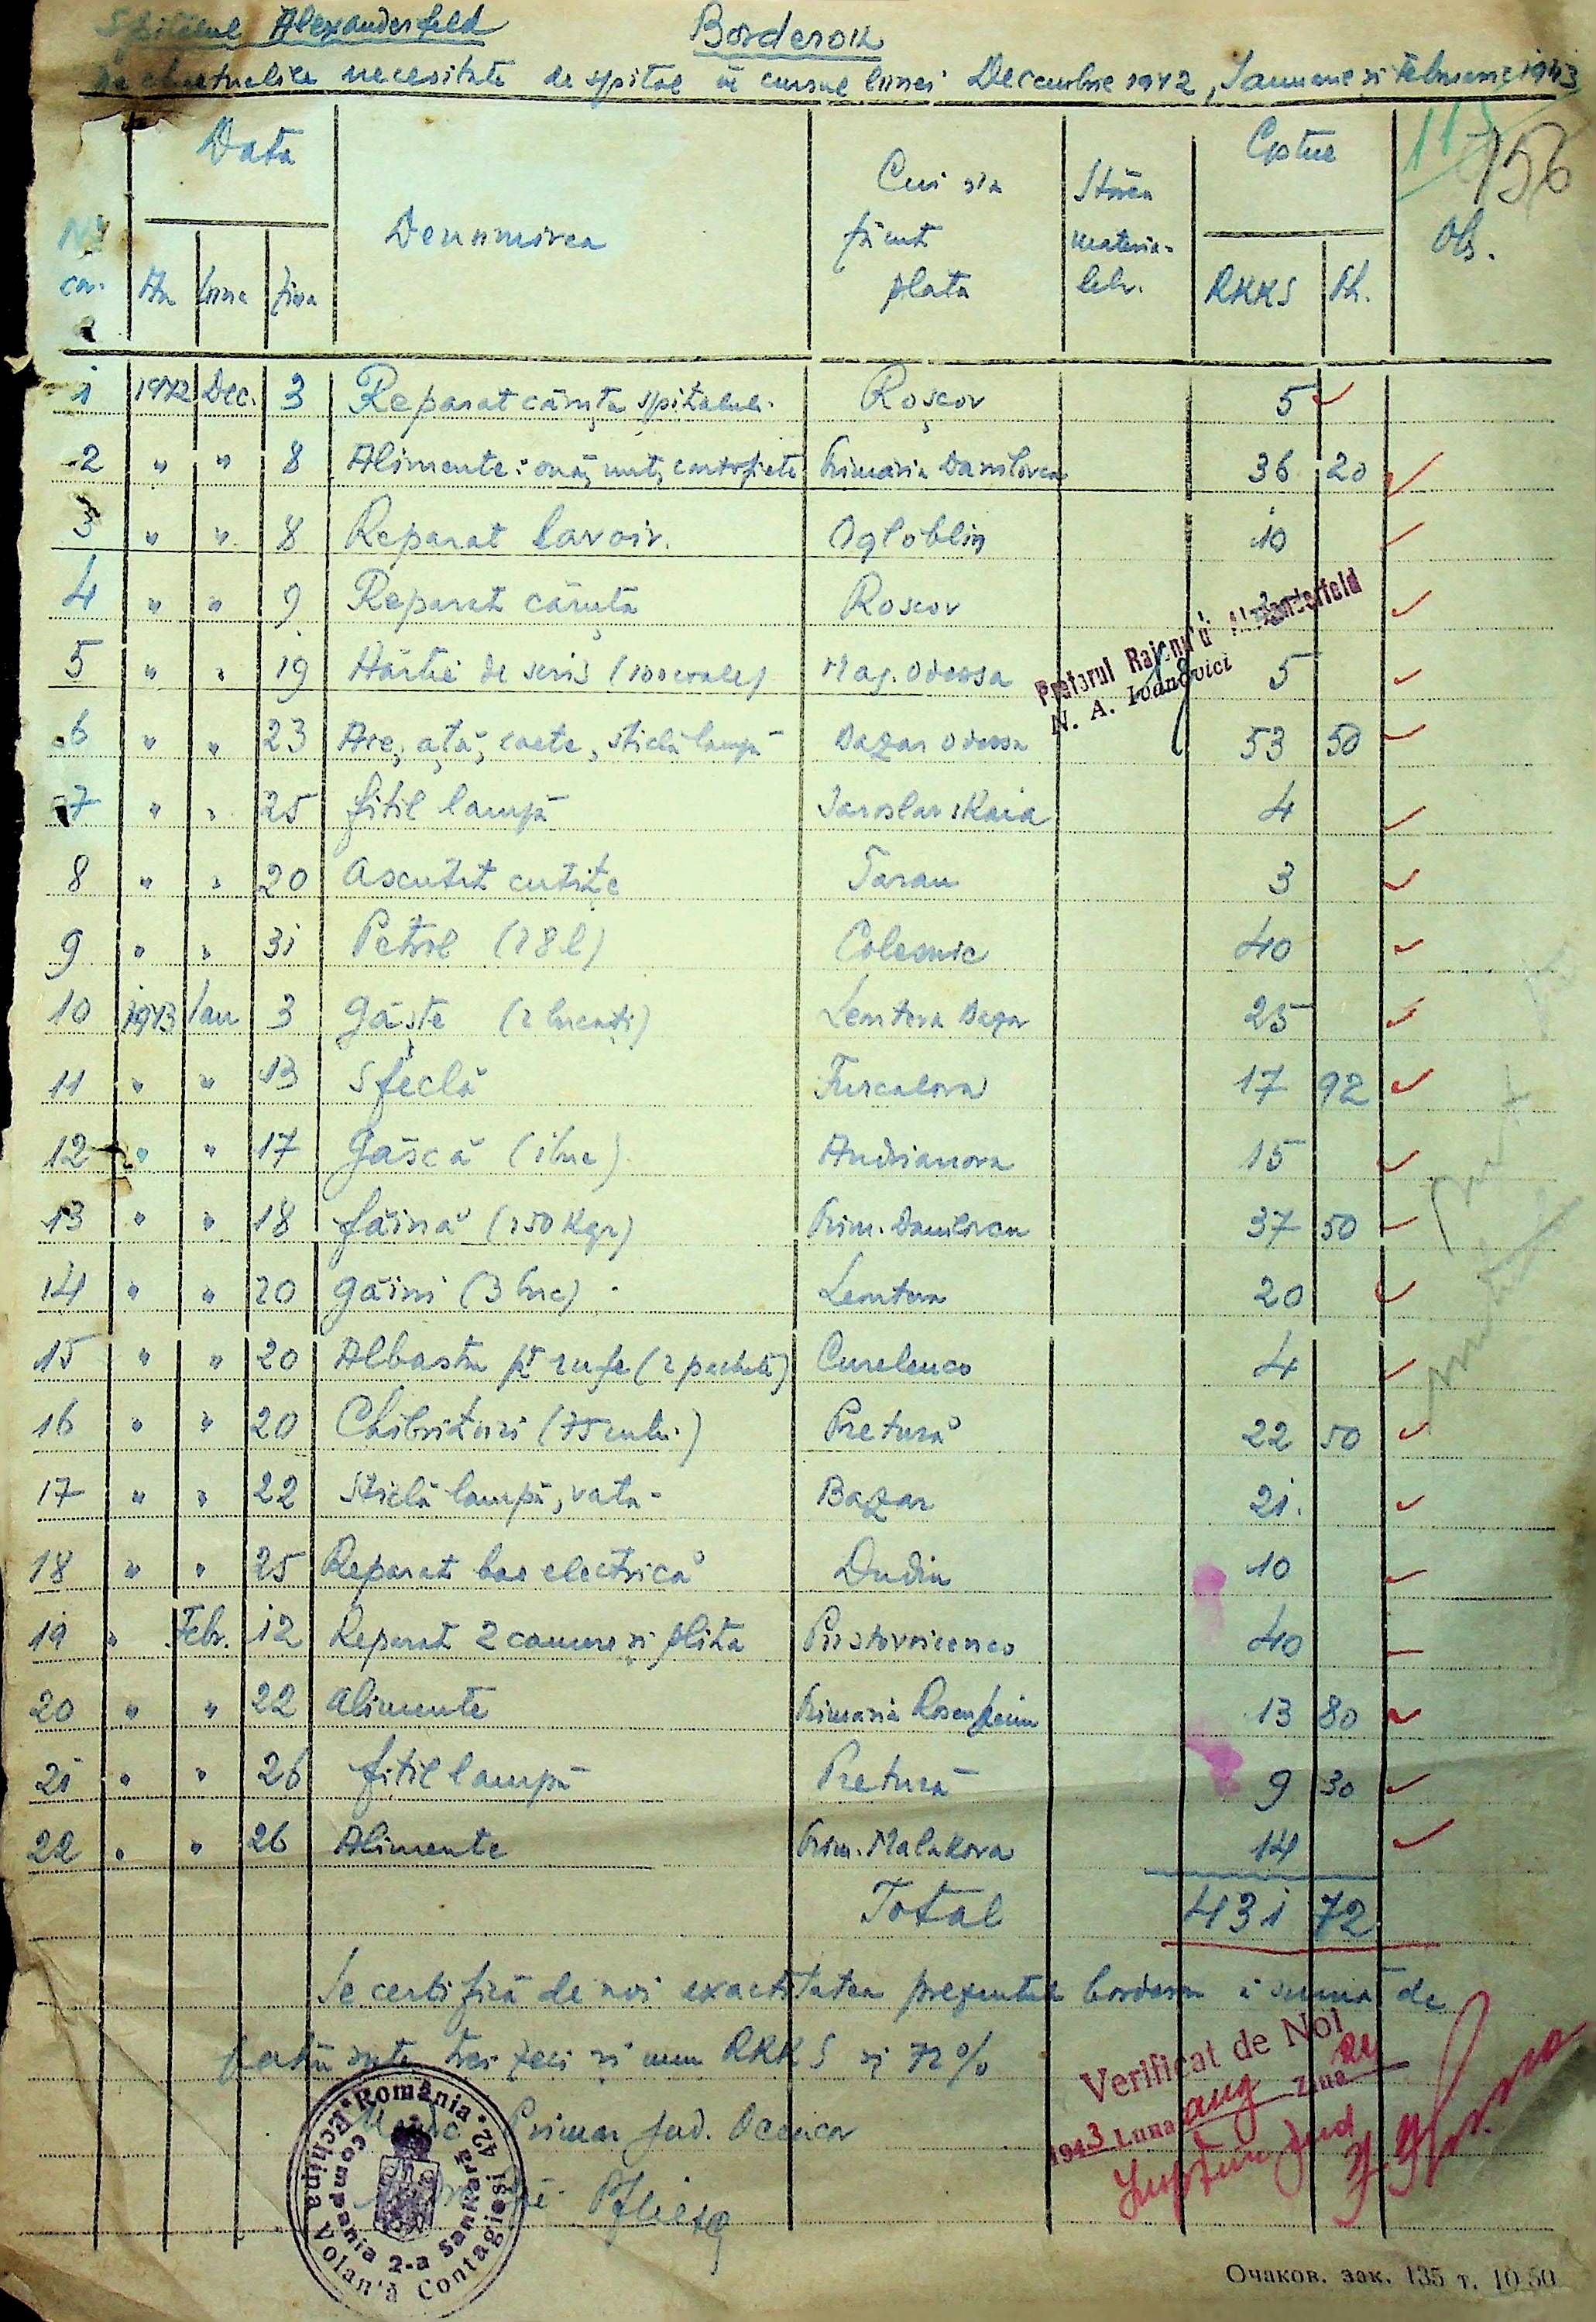 Spitalul Alexanderfeld
Borderou
De cheltuelile necesitate de spital în cursul lunei Decembrie 1942, Ianuarie și Februarie 1943
115
156
Nr. cr.
Data
An luna ziua
Denumirea
Cui s'a făcut plata
Starea materia-lelor.
Costul
RKKS Pf.
Obs.
1 1942 Dec. 3 Reparat căruța spitalului. Roșcov 5
2 " " 8 Alimente: ouă, unt, cartofi etc Primăria Danilovca 36 20
3 " " 8 Reparat lavoir. Ogloblin 10
4 " " 9 Reparat căruța Roscov
5 " " 19 Hârtie de scris (100 coale) Mag. Odessa 5
Pretorul Raionului Alexanderfeld
N. A. Ivanovici
6 " " 23 Ace, ață, caete, sticlă lampă Bazar Odessa 53 50
7 " " 25 fitil lampă Iaroslavskaia 4
8 " " 20 Ascuțit cuțite Taran 3
9 " " 31 Petrol (28 l) Colesnic 40
10 1943 Ian 3 Gâște (2 bucați) Lentova Bazar 25
11 " " 13 Sfeclă Turcalova 17 92
12 " " 17 Gâscă (1 buc) Andrianova 15
13 " " 18 făină (250 Kgr) Prim. Danilovca 37 50
14 " " 20 găini (3 buc) 20
15 " " 20 Albastru pt rufe (2 pachete) Curelenco 4
16 " " 20 Chibrituri (75 cutii) Pretură 22 50
17 " " 22 Sticlă lampă, vata Bazar 21.
18 " " 25 Reparat bae electrică Dudin 10
19 " Febr. 12 Reparat 2 camere și plita Pustovoicenco 40
20 " " 22 Alimente Primăria Rosenheim 13 80
21 " " 26 fitil lampă Pretură 9 30
22 " " 26 Alimente Prim. Malakova 14
Total 431 72
Se certifică de noi exactitatea prezentul borderou a suma de
patru sute trei zeci și unu RKKS și 72 %
Medic Primar Jud. Oceacov
România • 42
Echipa Volantă Contagioși
Compania 2-a Sanitară
Verificat de Noi
1943 Luna aug Ziua 24
Очаков. зак. 135 т. 10 50